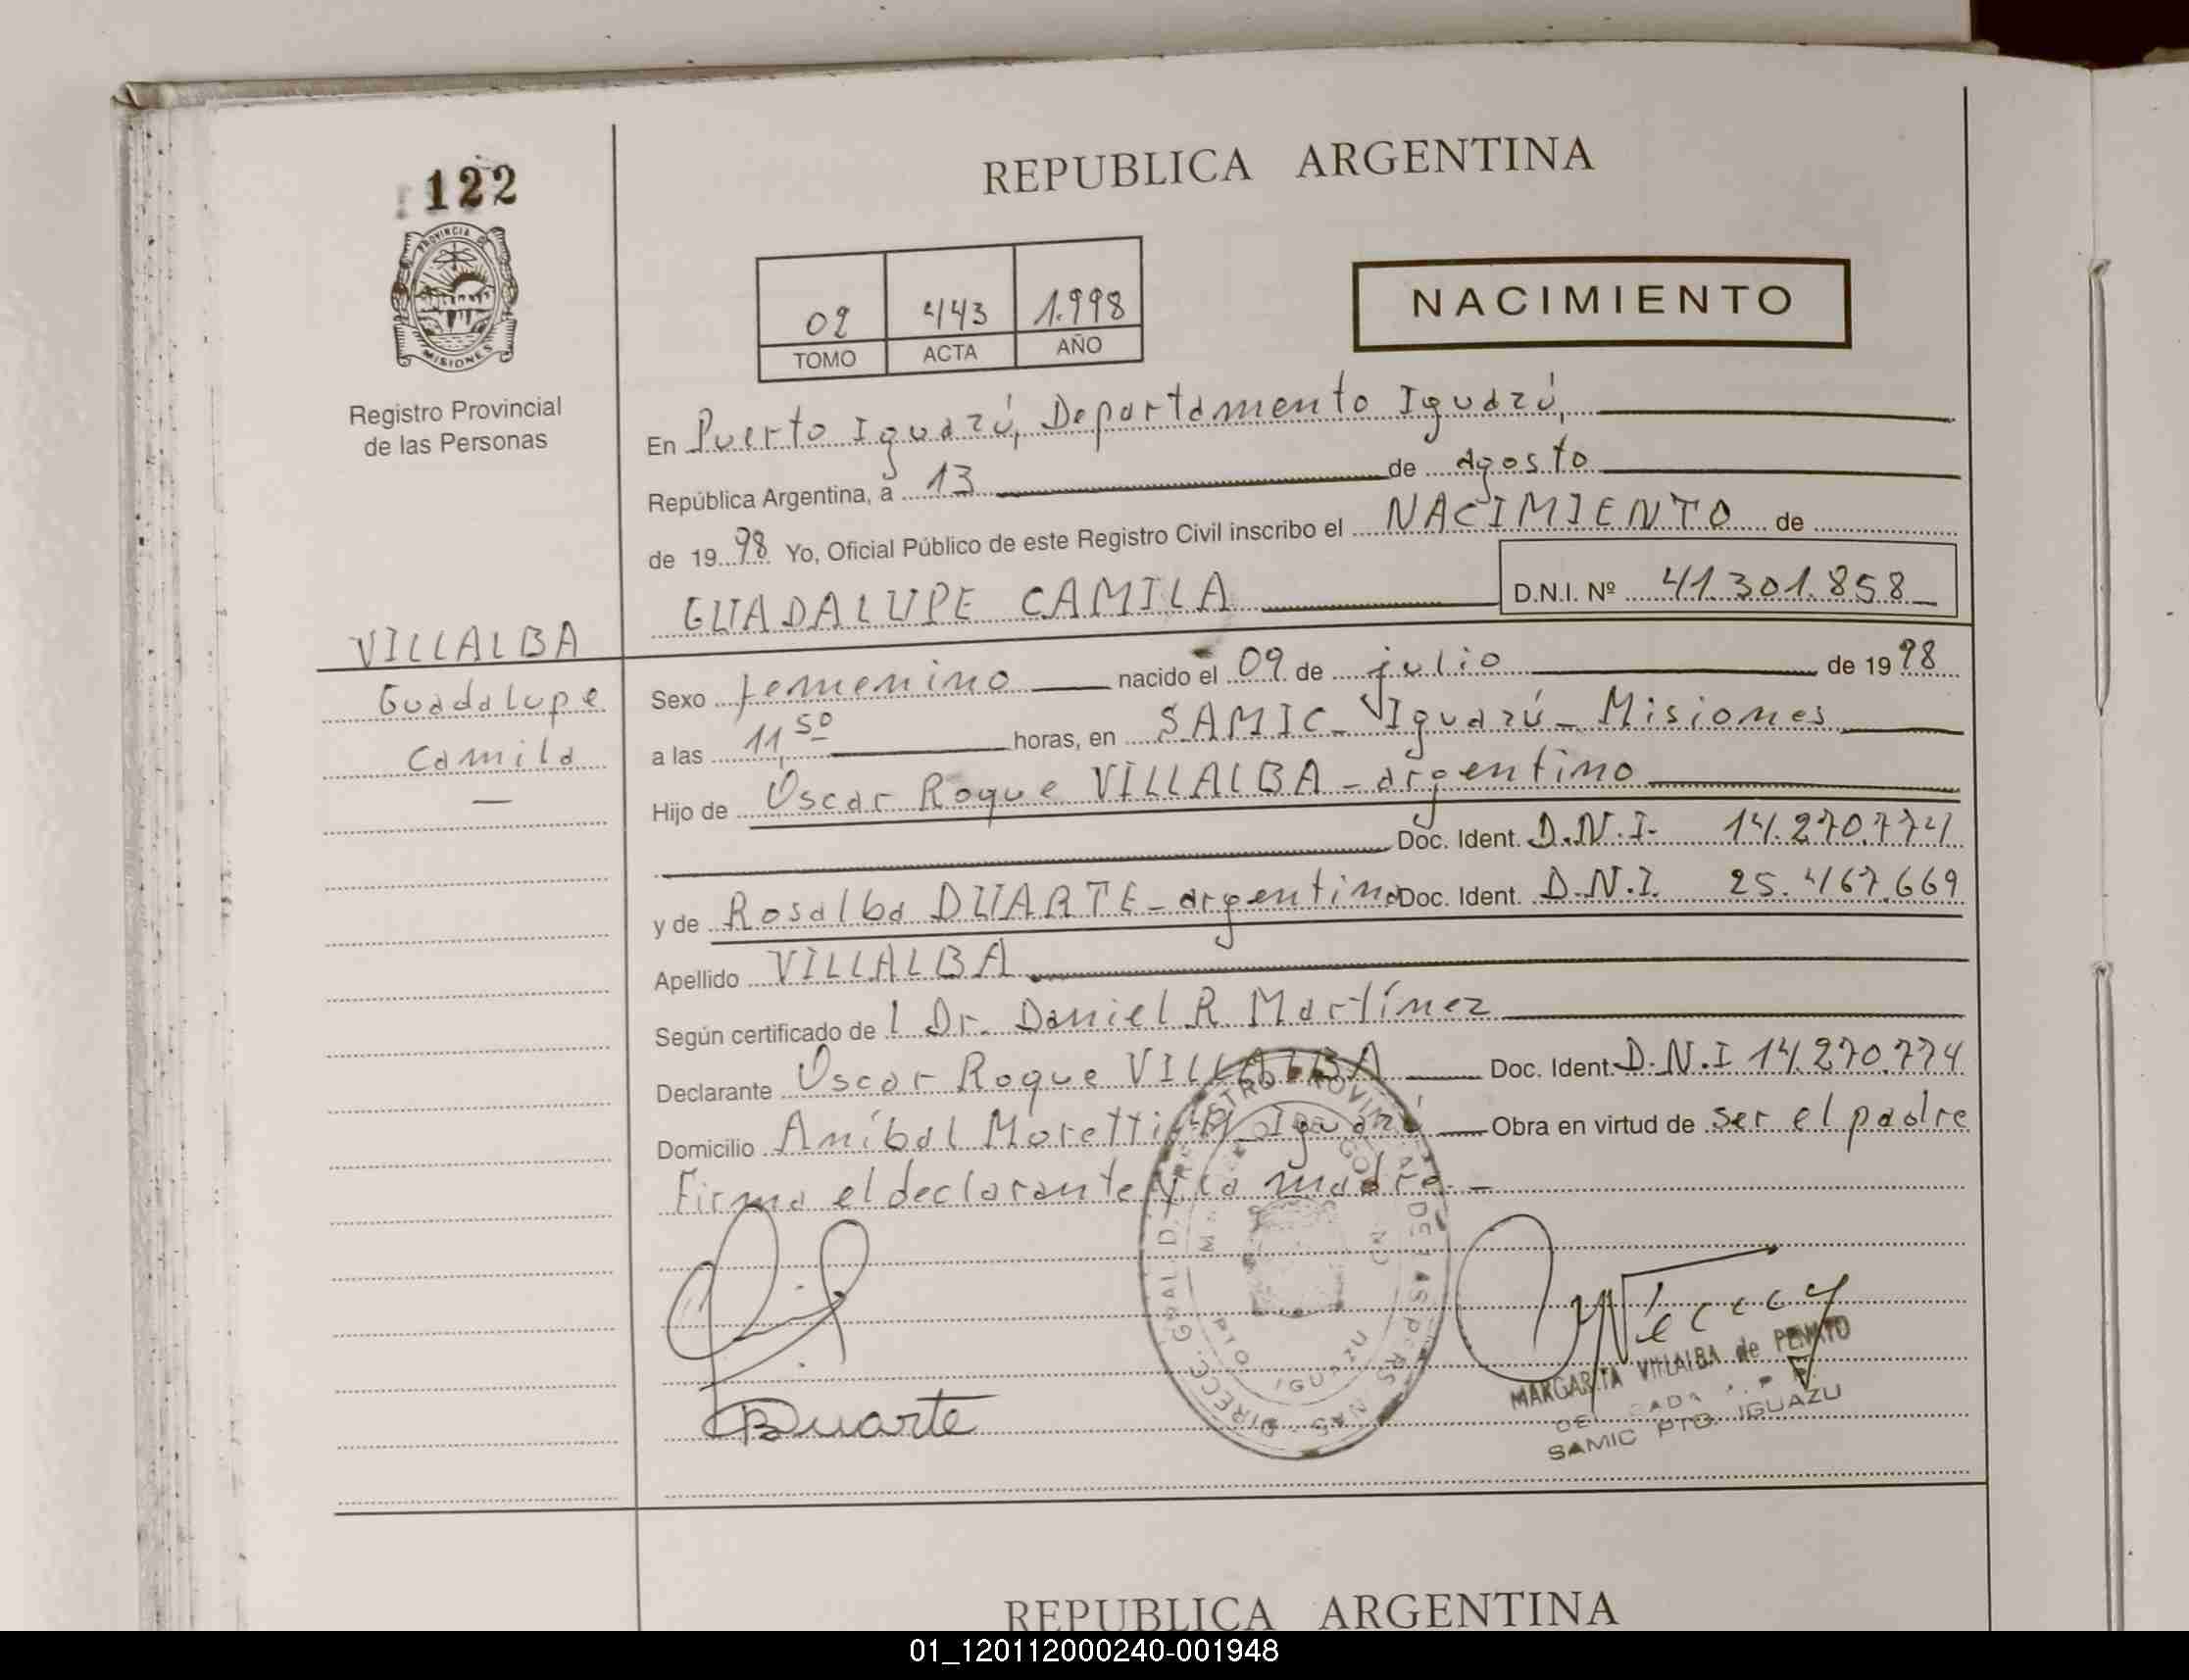 122
PROVINCIA DE
MISIONES
Registro Provincial
de las Personas
REPUBLICA ARGENTINA
02 443 1.998
TOMO ACTA AÑO
NACIMIENTO
En Puerto Iguazú, Departamento Iguazú,
República Argentina, a 13 de Agosto
de 1998 Yo, Oficial Público de este Registro Civil inscribo el NACIMIENTO de
GUADALUPE CAMILA D.N.I. Nº 41.301.858
VILLALBA
Guadalupe
Camila
Sexo femenino nacido el 09 de julio de 1998
a las 11,50 horas, en SAMIC - Iguazú - Misiones
Hijo de Oscar Roque VILLALBA - argentino
Doc. Ident. D.N.I. 14.270.774
y de Rosalba DUARTE - argentina Doc. Ident. D.N.I. 25.467.669
Apellido VILLALBA
Según certificado de l Dr. Daniel R. Martínez
Declarante Oscar Roque VILLALBA Doc. Ident. D.N.I 14.270.774
Domicilio Aníbal Moretti Iguazú Obra en virtud de ser el padre
Firma el declarante y la madre. -
Duarte
MARGARITA VILLALBA de PENATO
SAMIC PTO. IGUAZU
REPUBLICA ARGENTINA
01_120112000240-001948